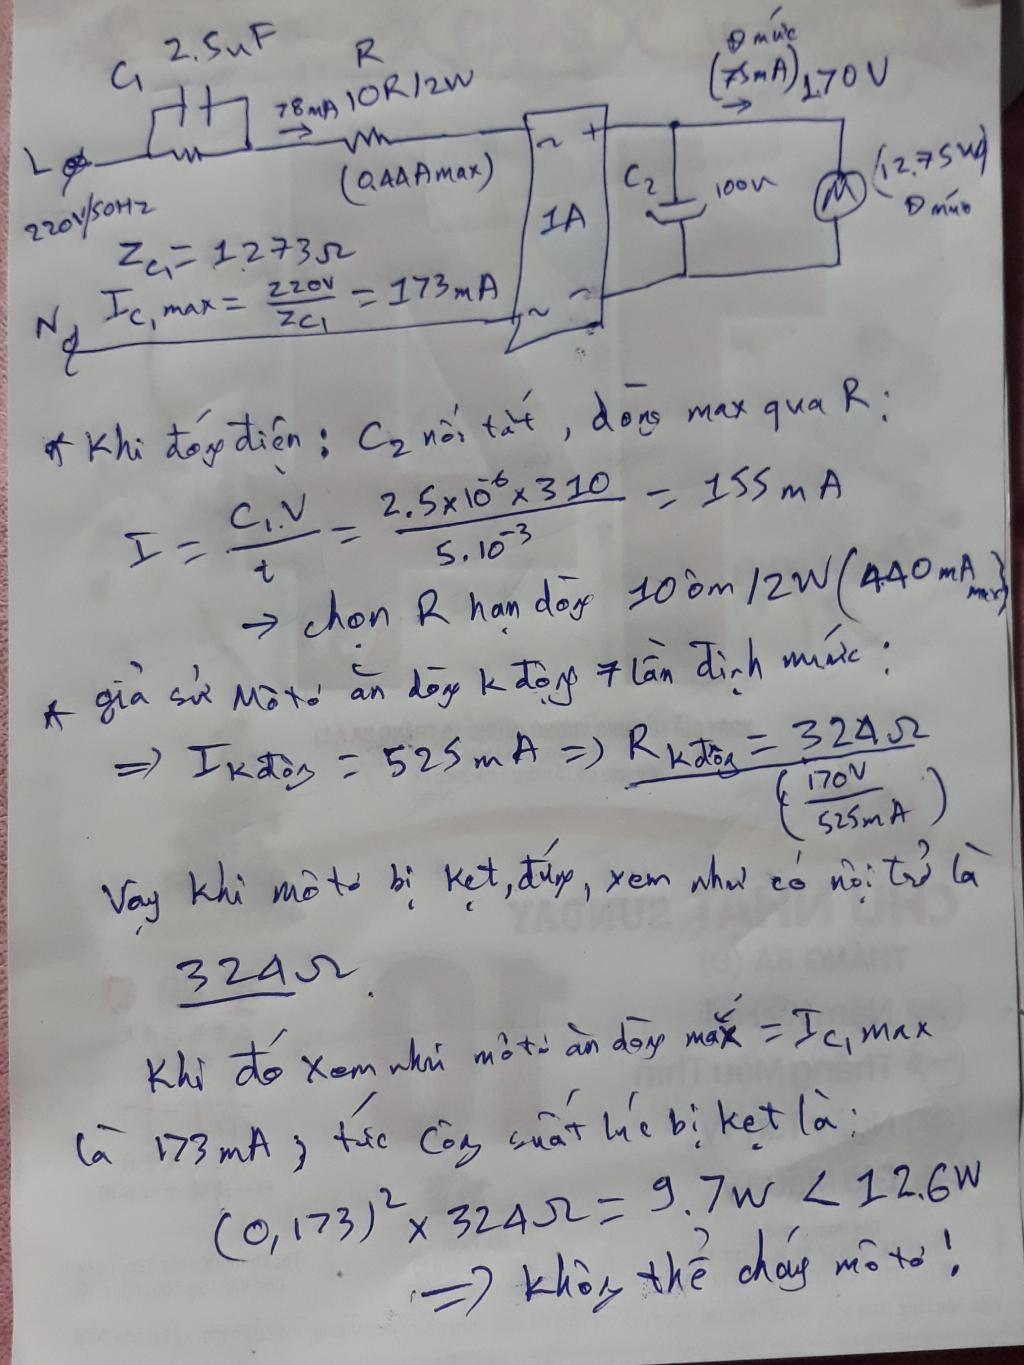 C₁ 2.5uF
R
78mA 10R/2W
(0.44Amax)
L
220V/50Hz
Z_C₁ = 1273Ω
I_C₁max = 220V / Z_C₁ = 173mA
N
~ +
1A
~ -
C₂ 100u
Đ mức
(75mA) 170V
M
(12.75W)
Đ mức
* Khi đóng điện: C₂ nối tắt, dòng max qua R:
I = C₁.V / t = 2.5x10⁻⁶ x 310 / 5.10⁻³ = 155mA
→ chọn R hạn dòng 10 ôm/2W (440mA max)
* giả sử Môtơ ăn dòng k động 7 lần định mức:
=> I k động = 525mA => R k động = 324Ω
(170V / 525mA)
Vậy khi môtơ bị kẹt, đứng, xem như có nội trở là
324Ω.
Khi đó xem như môtơ ăn dòng max = I_C₁max
là 173mA; tức công suất lúc bị kẹt là:
(0,173)² x 324Ω = 9.7W < 12.6W
=> không thể cháy môtơ!
CHỦ NHẬT SUNDAY
10